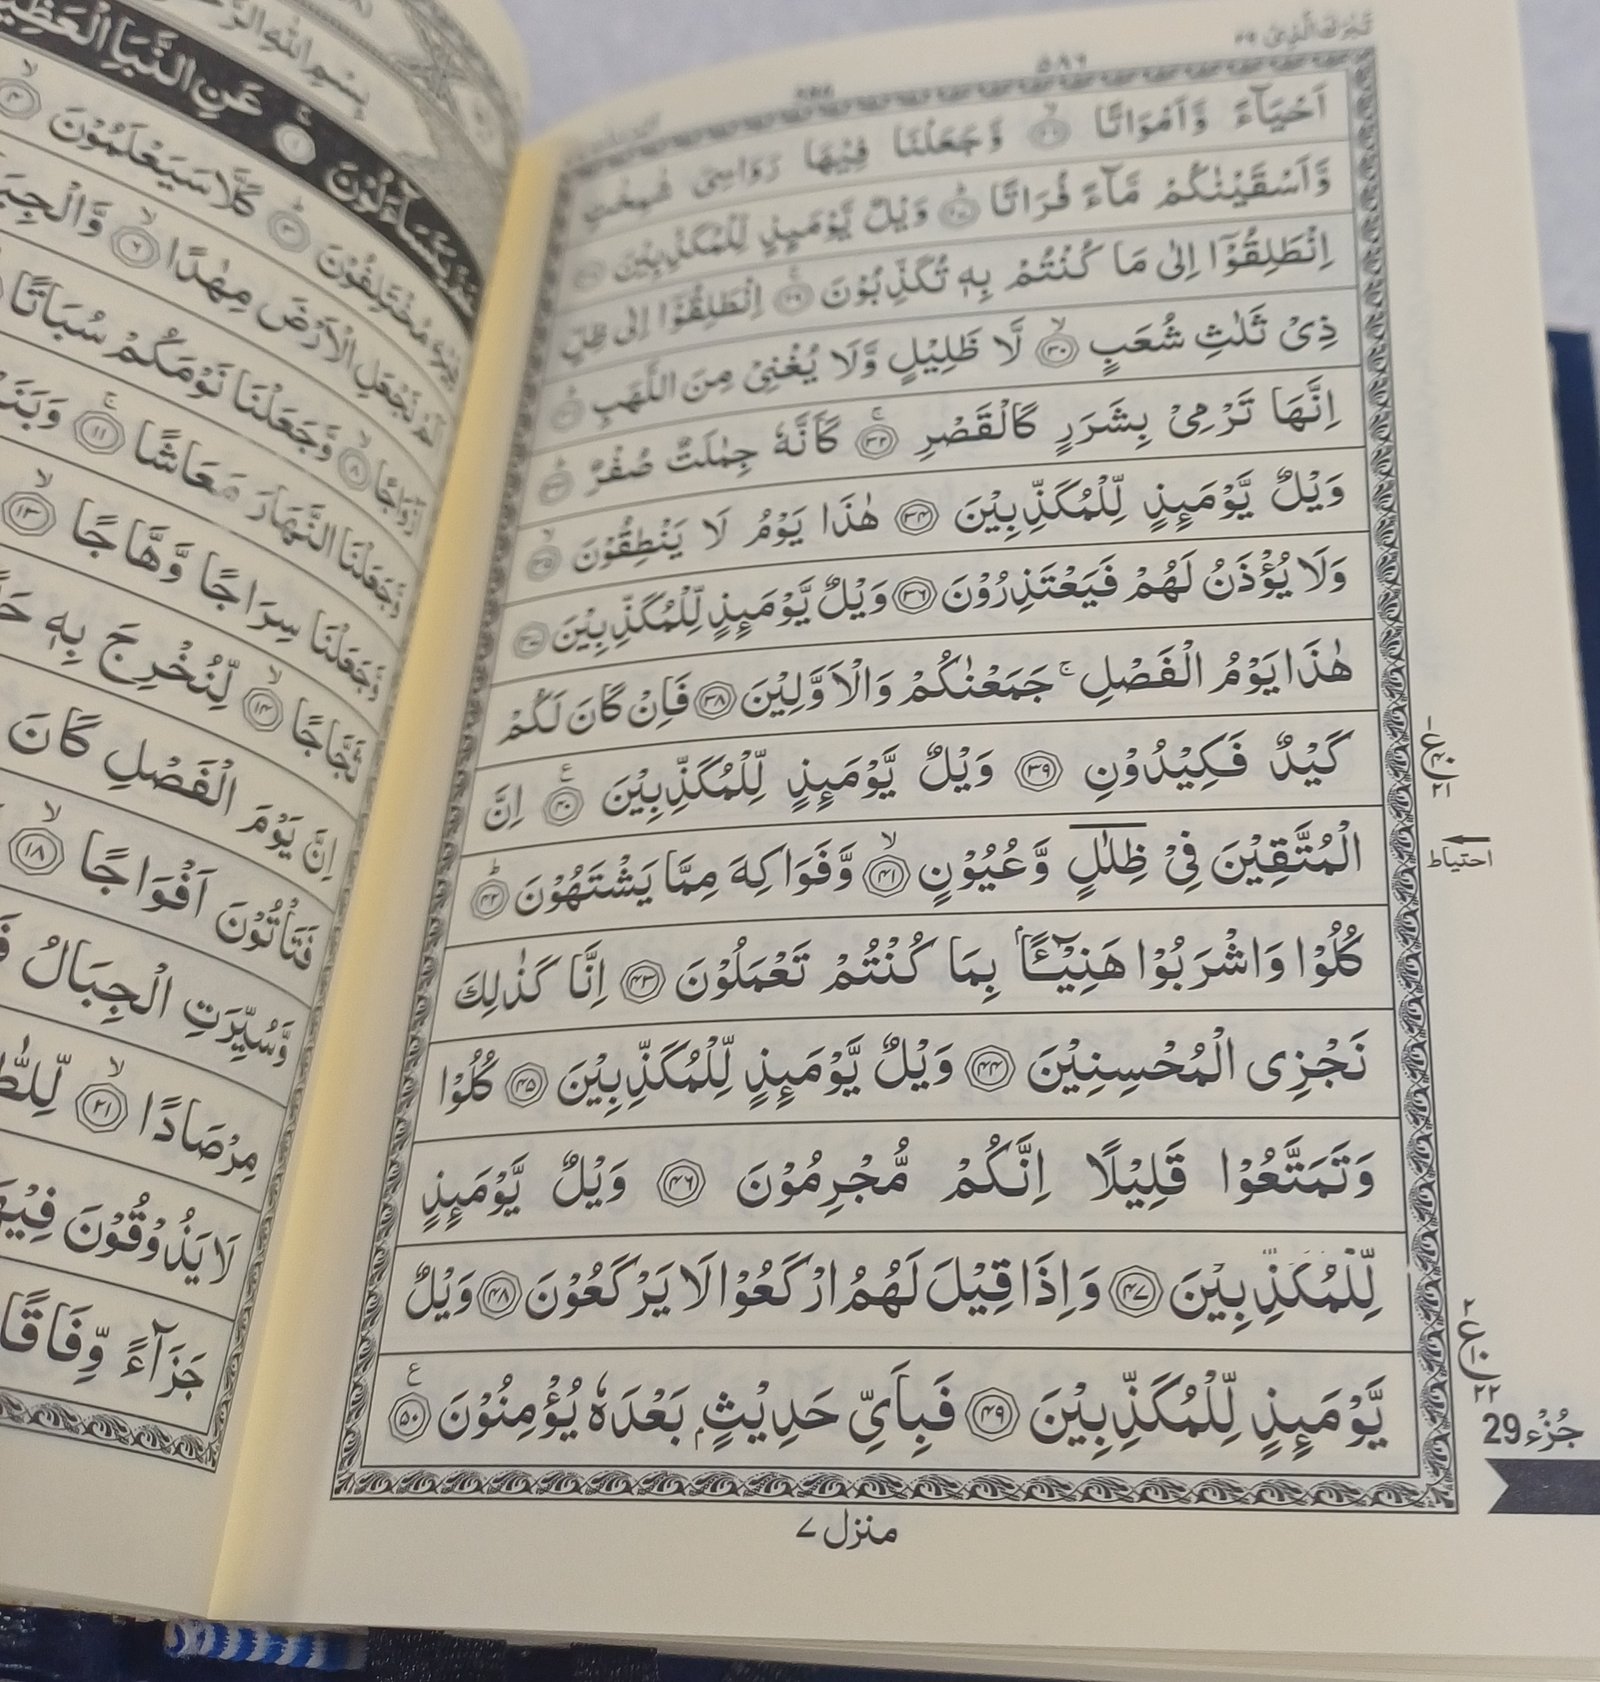 تَبٰرَكَ الَّذِیْ ٢٩
٥٨٦
اَحْيَآءً وَّاَمْوَاتًا ۙ﴿٢٦﴾ وَّجَعَلْنَا فِيْهَا رَوَاسِىَ شٰمِخٰتٍ
وَّاَسْقَيْنٰكُمْ مَّآءً فُرَاتًا ؕ﴿٢٧﴾ وَيْلٌ يَّوْمَىِٕذٍ لِّلْمُكَذِّبِيْنَ ﴿٢٨﴾
اِنْطَلِقُوْٓا اِلٰى مَا كُنْتُمْ بِهٖ تُكَذِّبُوْنَ ۚ﴿٢٩﴾ اِنْطَلِقُوْٓا اِلٰى ظِلٍّ
ذِىْ ثَلٰثِ شُعَبٍ ۙ﴿٣٠﴾ لَّا ظَلِيْلٍ وَّلَا يُغْنِىْ مِنَ اللَّهَبِ ؕ﴿٣١﴾
اِنَّهَا تَرْمِىْ بِشَرَرٍ كَالْقَصْرِ ۚ﴿٣٢﴾ كَاَنَّهٗ جِمٰلَتٌ صُفْرٌ ؕ﴿٣٣﴾
وَيْلٌ يَّوْمَىِٕذٍ لِّلْمُكَذِّبِيْنَ ﴿٣٤﴾ هٰذَا يَوْمُ لَا يَنْطِقُوْنَ ۙ﴿٣٥﴾
وَلَا يُؤْذَنُ لَهُمْ فَيَعْتَذِرُوْنَ ﴿٣٦﴾ وَيْلٌ يَّوْمَىِٕذٍ لِّلْمُكَذِّبِيْنَ ﴿٣٧﴾
هٰذَا يَوْمُ الْفَصْلِ ۚ جَمَعْنٰكُمْ وَالْاَوَّلِيْنَ ﴿٣٨﴾ فَاِنْ كَانَ لَكُمْ
كَيْدٌ فَكِيْدُوْنِ ﴿٣٩﴾ وَيْلٌ يَّوْمَىِٕذٍ لِّلْمُكَذِّبِيْنَ ﴿٤٠﴾ ع اِنَّ
الْمُتَّقِيْنَ فِىْ ظِلٰلٍ وَّعُيُوْنٍ ۙ﴿٤١﴾ وَّفَوَاكِهَ مِمَّا يَشْتَهُوْنَ ؕ﴿٤٢﴾
كُلُوْا وَاشْرَبُوْا هَنِيْٓـًٔۢا بِمَا كُنْتُمْ تَعْمَلُوْنَ ﴿٤٣﴾ اِنَّا كَذٰلِكَ
نَجْزِى الْمُحْسِنِيْنَ ﴿٤٤﴾ وَيْلٌ يَّوْمَىِٕذٍ لِّلْمُكَذِّبِيْنَ ﴿٤٥﴾ كُلُوْا
وَتَمَتَّعُوْا قَلِيْلًا اِنَّكُمْ مُّجْرِمُوْنَ ﴿٤٦﴾ وَيْلٌ يَّوْمَىِٕذٍ
لِّلْمُكَذِّبِيْنَ ﴿٤٧﴾ وَاِذَا قِيْلَ لَهُمُ ارْكَعُوْا لَا يَرْكَعُوْنَ ﴿٤٨﴾ وَيْلٌ
يَّوْمَىِٕذٍ لِّلْمُكَذِّبِيْنَ ﴿٤٩﴾ فَبِاَىِّ حَدِيْثٍۭ بَعْدَهٗ يُؤْمِنُوْنَ ﴿٥٠﴾ ع
منزل ٧
١ ع ٤٠ ٢١
احتیاط
٢ ع ١٠ ٢٢
جُزْء 29
بِسْمِ اللّٰهِ
عَنِ النَّبَاِ الْعَظِيْمِ
مُخْتَلِفُوْنَ ؕ﴿٣﴾ كَلَّا سَيَعْلَمُوْنَ ۙ﴿٤﴾
اَلَمْ نَجْعَلِ الْاَرْضَ مِهٰدًا ۙ﴿٦﴾ وَّالْجِبَ
اَزْوَاجًا ۙ﴿٨﴾ وَّجَعَلْنَا نَوْمَكُمْ سُبَاتًا
وَّجَعَلْنَا النَّهَارَ مَعَاشًا ۚ﴿١١﴾ وَبَنَ
وَّجَعَلْنَا سِرَاجًا وَّهَّاجًا ۙ﴿١٣﴾
ثَجَّاجًا ۙ﴿١٤﴾ لِّنُخْرِجَ بِهٖ
اِنَّ يَوْمَ الْفَصْلِ كَانَ
فَتَاْتُوْنَ اَفْوَاجًا ۙ﴿١٨﴾
وَّسُيِّرَتِ الْجِبَالُ
مِرْصَادًا ۙ﴿٢١﴾ لِّلطّ
لَا يَذُوْقُوْنَ فِيْهَ
جَزَآءً وِّفَاقًا